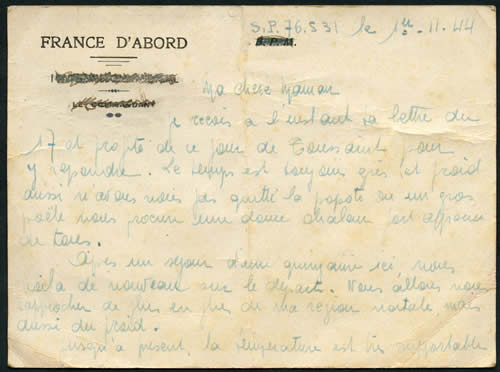 S.P. 76.531 le 1er - 11 - 44
FRANCE D'ABORD
S.P.M.
Ma chère Maman
Je reçois à l'instant ta lettre du
17 et profite de ce jour de Toussaint pour
y répondre. Le temps est toujours gris et froid
aussi n'avons nous pas quitté la popote où un gros
poêle nous procure une douce chaleur fort appréciée
de tous.
Après un séjour d'une quinzaine ici, nous
voilà de nouveau sur le départ. Nous allons nous
rapprocher de plus en plus de ma région natale mais
aussi du froid.
Jusqu'à présent, la température est très supportable